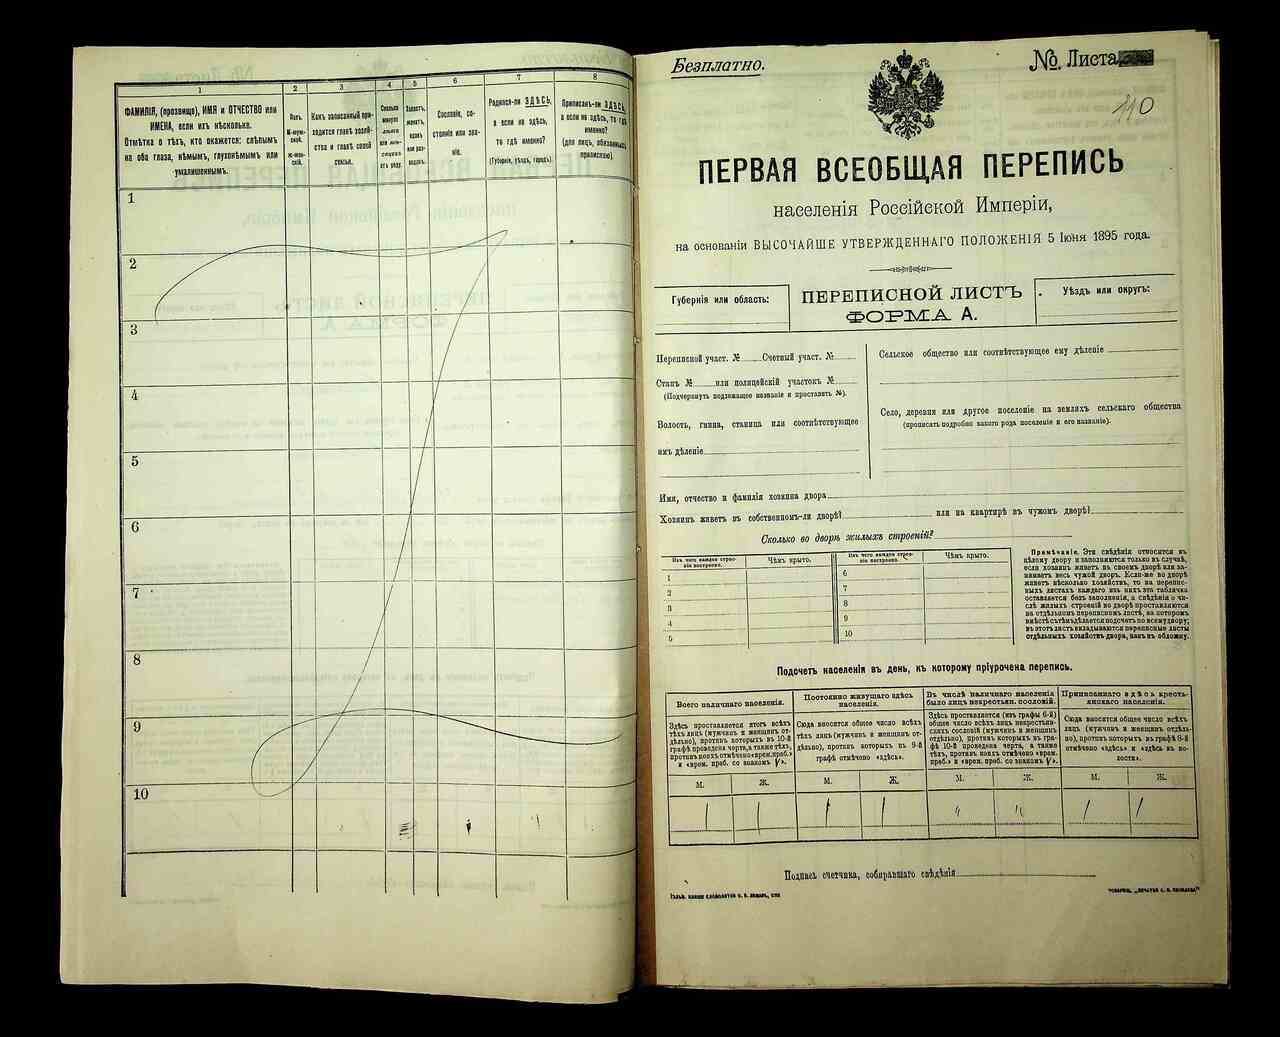 1
2
3
4
5
6
7
8
ФАМИЛІЯ, (прозвище), ИМЯ и ОТЧЕСТВО или
ИМЕНА, если ихъ нѣсколько.
Отмѣтка о тѣхъ, кто окажется: слѣпымъ
на оба глаза, нѣмымъ, глухонѣмымъ или
умалишеннымъ.
Полъ.
М-муж-
ской.
Ж-жен-
скій.
Какъ записанный при-
ходится главѣ хозяй-
ства и главѣ своей
семьи.
Сколько
минуло
лѣтъ
или мѣ-
сяцевъ
отъ роду.
Холостъ,
женатъ,
вдовъ
или раз-
веденъ.
Сословіе, со-
стояніе или зва-
ніе.
Родился-ли ЗДѢСЬ,
а если не здѣсь,
то гдѣ именно?
(Губернія, уѣздъ, городъ).
Приписанъ-ли ЗДѢСЬ,
а если не здѣсь, то гдѣ
именно?
(для лицъ, обязанныхъ
припискою).
1
2
3
4
5
6
7
8
9
10
Безплатно.
№. Листа
110
ПЕРВАЯ ВСЕОБЩАЯ ПЕРЕПИСЬ
населенія Россійской Имперіи,
на основаніи ВЫСОЧАЙШЕ УТВЕРЖДЕННАГО ПОЛОЖЕНІЯ 5 Іюня 1895 года.
Губернія или область:
ПЕРЕПИСНОЙ ЛИСТЪ
ФОРМА А.
Уѣздъ или округъ:
Переписной участ. № Счетный участ. №
Станъ № или полицейскій участокъ №
(Подчеркнуть подлежащее названіе и проставить №).
Волость, гмина, станица или соотвѣтствующее
имъ дѣленіе
Сельское общество или соотвѣтствующее ему дѣленіе
Село, деревня или другое поселеніе на земляхъ сельскаго общества
(прописать подробно какого рода поселеніе и его названіе).
Имя, отчество и фамилія хозяина двора
Хозяинъ живетъ въ собственномъ-ли дворѣ? или на квартирѣ въ чужомъ дворѣ?
Сколько во дворѣ жилыхъ строеній?
Изъ чего каждое строе-
ніе построено.
Чѣмъ крыто.
Изъ чего каждое строе-
ніе построено.
Чѣмъ крыто.
1
2
3
4
5
6
7
8
9
10
Примѣчаніе. Эти свѣдѣнія относятся къ
цѣлому двору и заполняются только въ случаѣ,
если хозяинъ живетъ въ своемъ дворѣ или за-
нимаетъ весь чужой дворъ. Если-же во дворѣ
живетъ нѣсколько хозяйствъ, то на перепис-
ныхъ листахъ каждаго изъ нихъ эта табличка
оставляется безъ заполненія, а свѣдѣнія о чи-
слѣ жилыхъ строеній во дворѣ проставляются
на отдѣльномъ переписномъ листѣ, на которомъ
вмѣстѣ съ тѣмъ дѣлается подсчетъ по всему двору;
въ этотъ листъ вкладываются переписные листы
отдѣльныхъ хозяйствъ двора, какъ въ обложку.
Подсчетъ населенія въ день, къ которому пріурочена перепись.
Всего наличнаго населенія.
Постоянно живущаго здѣсь
населенія.
Въ числѣ наличнаго населенія
было лицъ некрестьян. сословій.
Приписаннаго здѣсь кресть-
янскаго населенія.
Здѣсь проставляется итогъ всѣхъ
тѣхъ лицъ (мужчинъ и женщинъ от-
дѣльно), противъ которыхъ въ 10-й
графѣ проведена черта, а также тѣхъ,
противъ коихъ отмѣчено «врем. преб.»
и «врем. преб. со знакомъ V».
Сюда вносится общее число всѣхъ
тѣхъ лицъ (мужчинъ и женщинъ от-
дѣльно), противъ которыхъ въ 9-й
графѣ отмѣчено «здѣсь».
Здѣсь проставляется (изъ графы 6-й)
общее число всѣхъ лицъ некрестьян-
скихъ сословій (мужчинъ и женщинъ от-
дѣльно), противъ которыхъ въ гра-
фѣ 10-й проведена черта, а также
тѣхъ, противъ коихъ отмѣчено «врем.
преб.» и «врем. преб. со знакомъ V».
Сюда вносится общее число всѣхъ
лицъ (мужчинъ и женщинъ отдѣль-
но), противъ которыхъ въ графѣ 8-й
отмѣчено «здѣсь» и «здѣсь въ во-
лости».
М.
Ж.
М.
Ж.
М.
Ж.
М.
Ж.
Подпись счетчика, собиравшаго свѣдѣнія